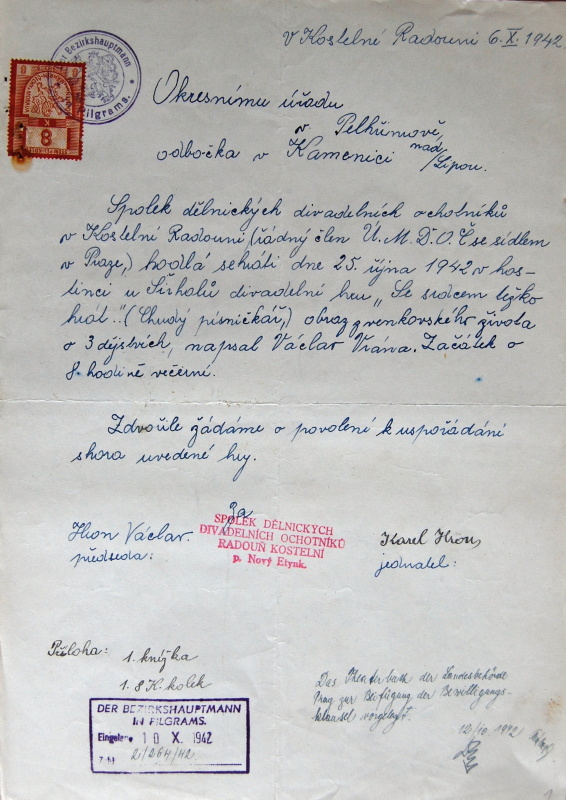 V Kostelní Radouni 6.X.1942
Bezirkshauptmann
Pilgrams.
K
8
Okresnímu úřadu
v Pelhřimově,
odbočka v Kamenici nad/Lipou.
Spolek dělnických divadelních ochotníků
v Kostelní Radouni, (řádný člen Ú.M.D.O.Č se sídlem
v Praze,) hodlá sehráti dne 25. října 1942 v hos-
tinci u divadelní hru „Se srdcem těžko
hrát..“ (Chudý písničkář,) obraz z venkovského života
o 3 dějstvích, napsal Václav Vrána. Začátek o
8 hodině večerní.
Zdvořile žádáme o povolení k uspořádání
shora uvedené hry.
Za
SPOLEK DĚLNICKÝCH
DIVADELNÍCH OCHOTNÍKŮ
RADOUŇ KOSTELNÍ
p. Nový Etynk.
Hron Václav.
předseda:
Karel Hron
jednatel:
Příloha: 1. knížka
1. 8 K. kolek
DER BEZIRKSHAUPTMANN
IN PILGRAMS.
Eingel. 10 X. 1942
Z-hl 2/264/42
Das Theaterbuch der Landesbehörde
Prag zur Beifügung der Bewilligungs-
klausel vorgelegt.
12/10. 1942